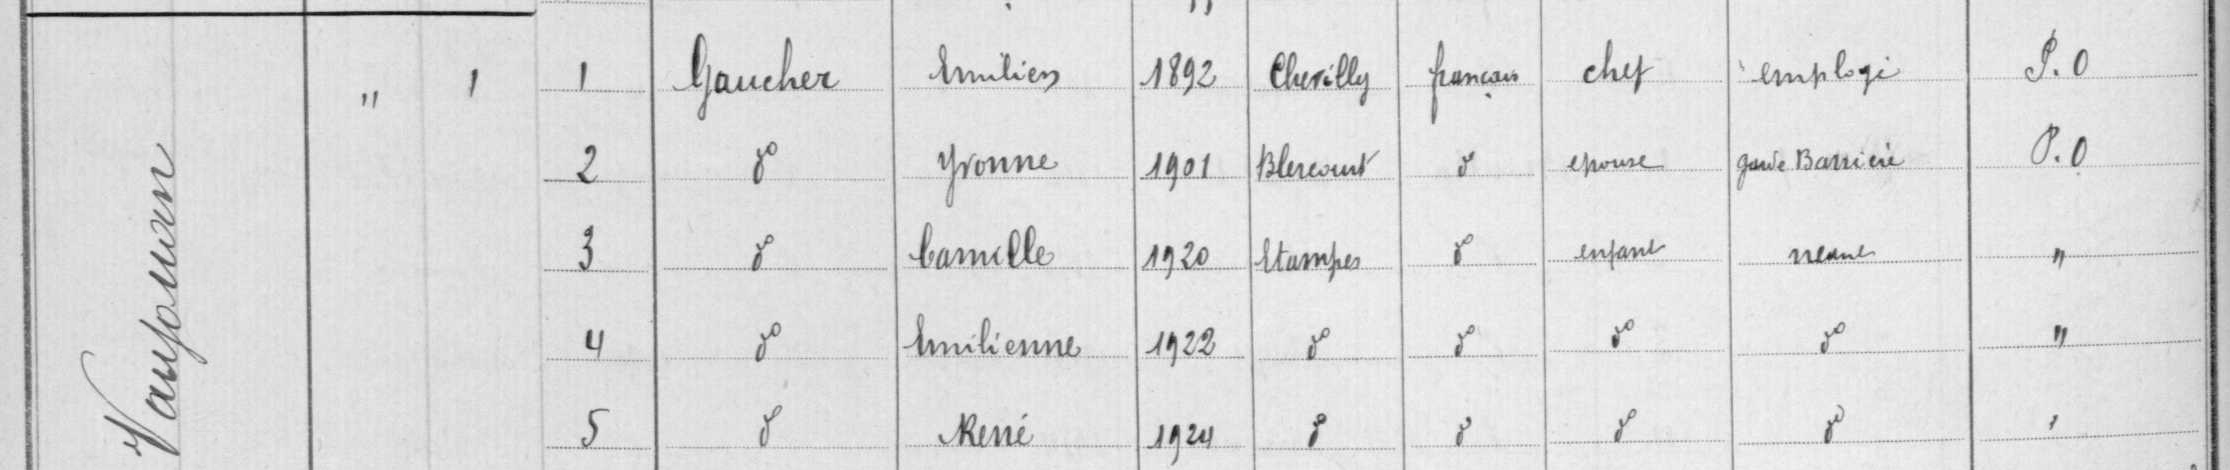 " 1 1 Gaucher Emilien 1892 Chevilly français chef employé P.O
2 do Yvonne 1901 Blercourt do epouse garde Barrière P.O
3 do Camille 1920 Etampes do enfant neant "
4 do Emilienne 1922 do do do do "
5 do René 1924 do do do do "